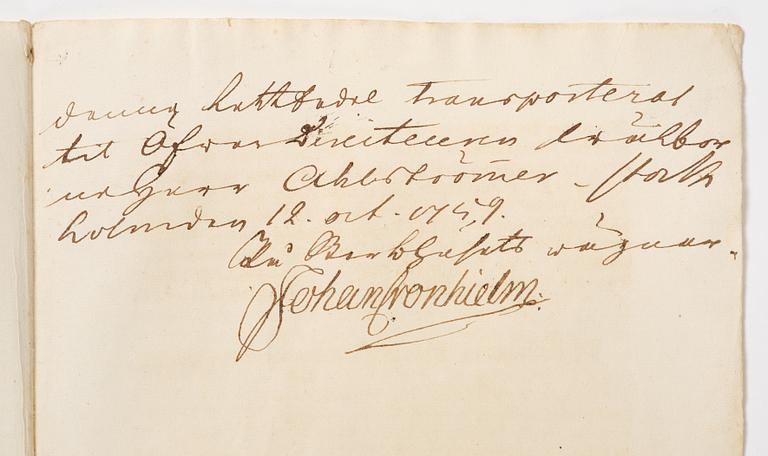 denna Lutthedel transporterat
til Öfwer Directeuren wälbor
ne Herr Ahlströmer - Stock
holm den 12. oct. 1759.
På Berkhusets wägnar.
Johan Cronhielm.